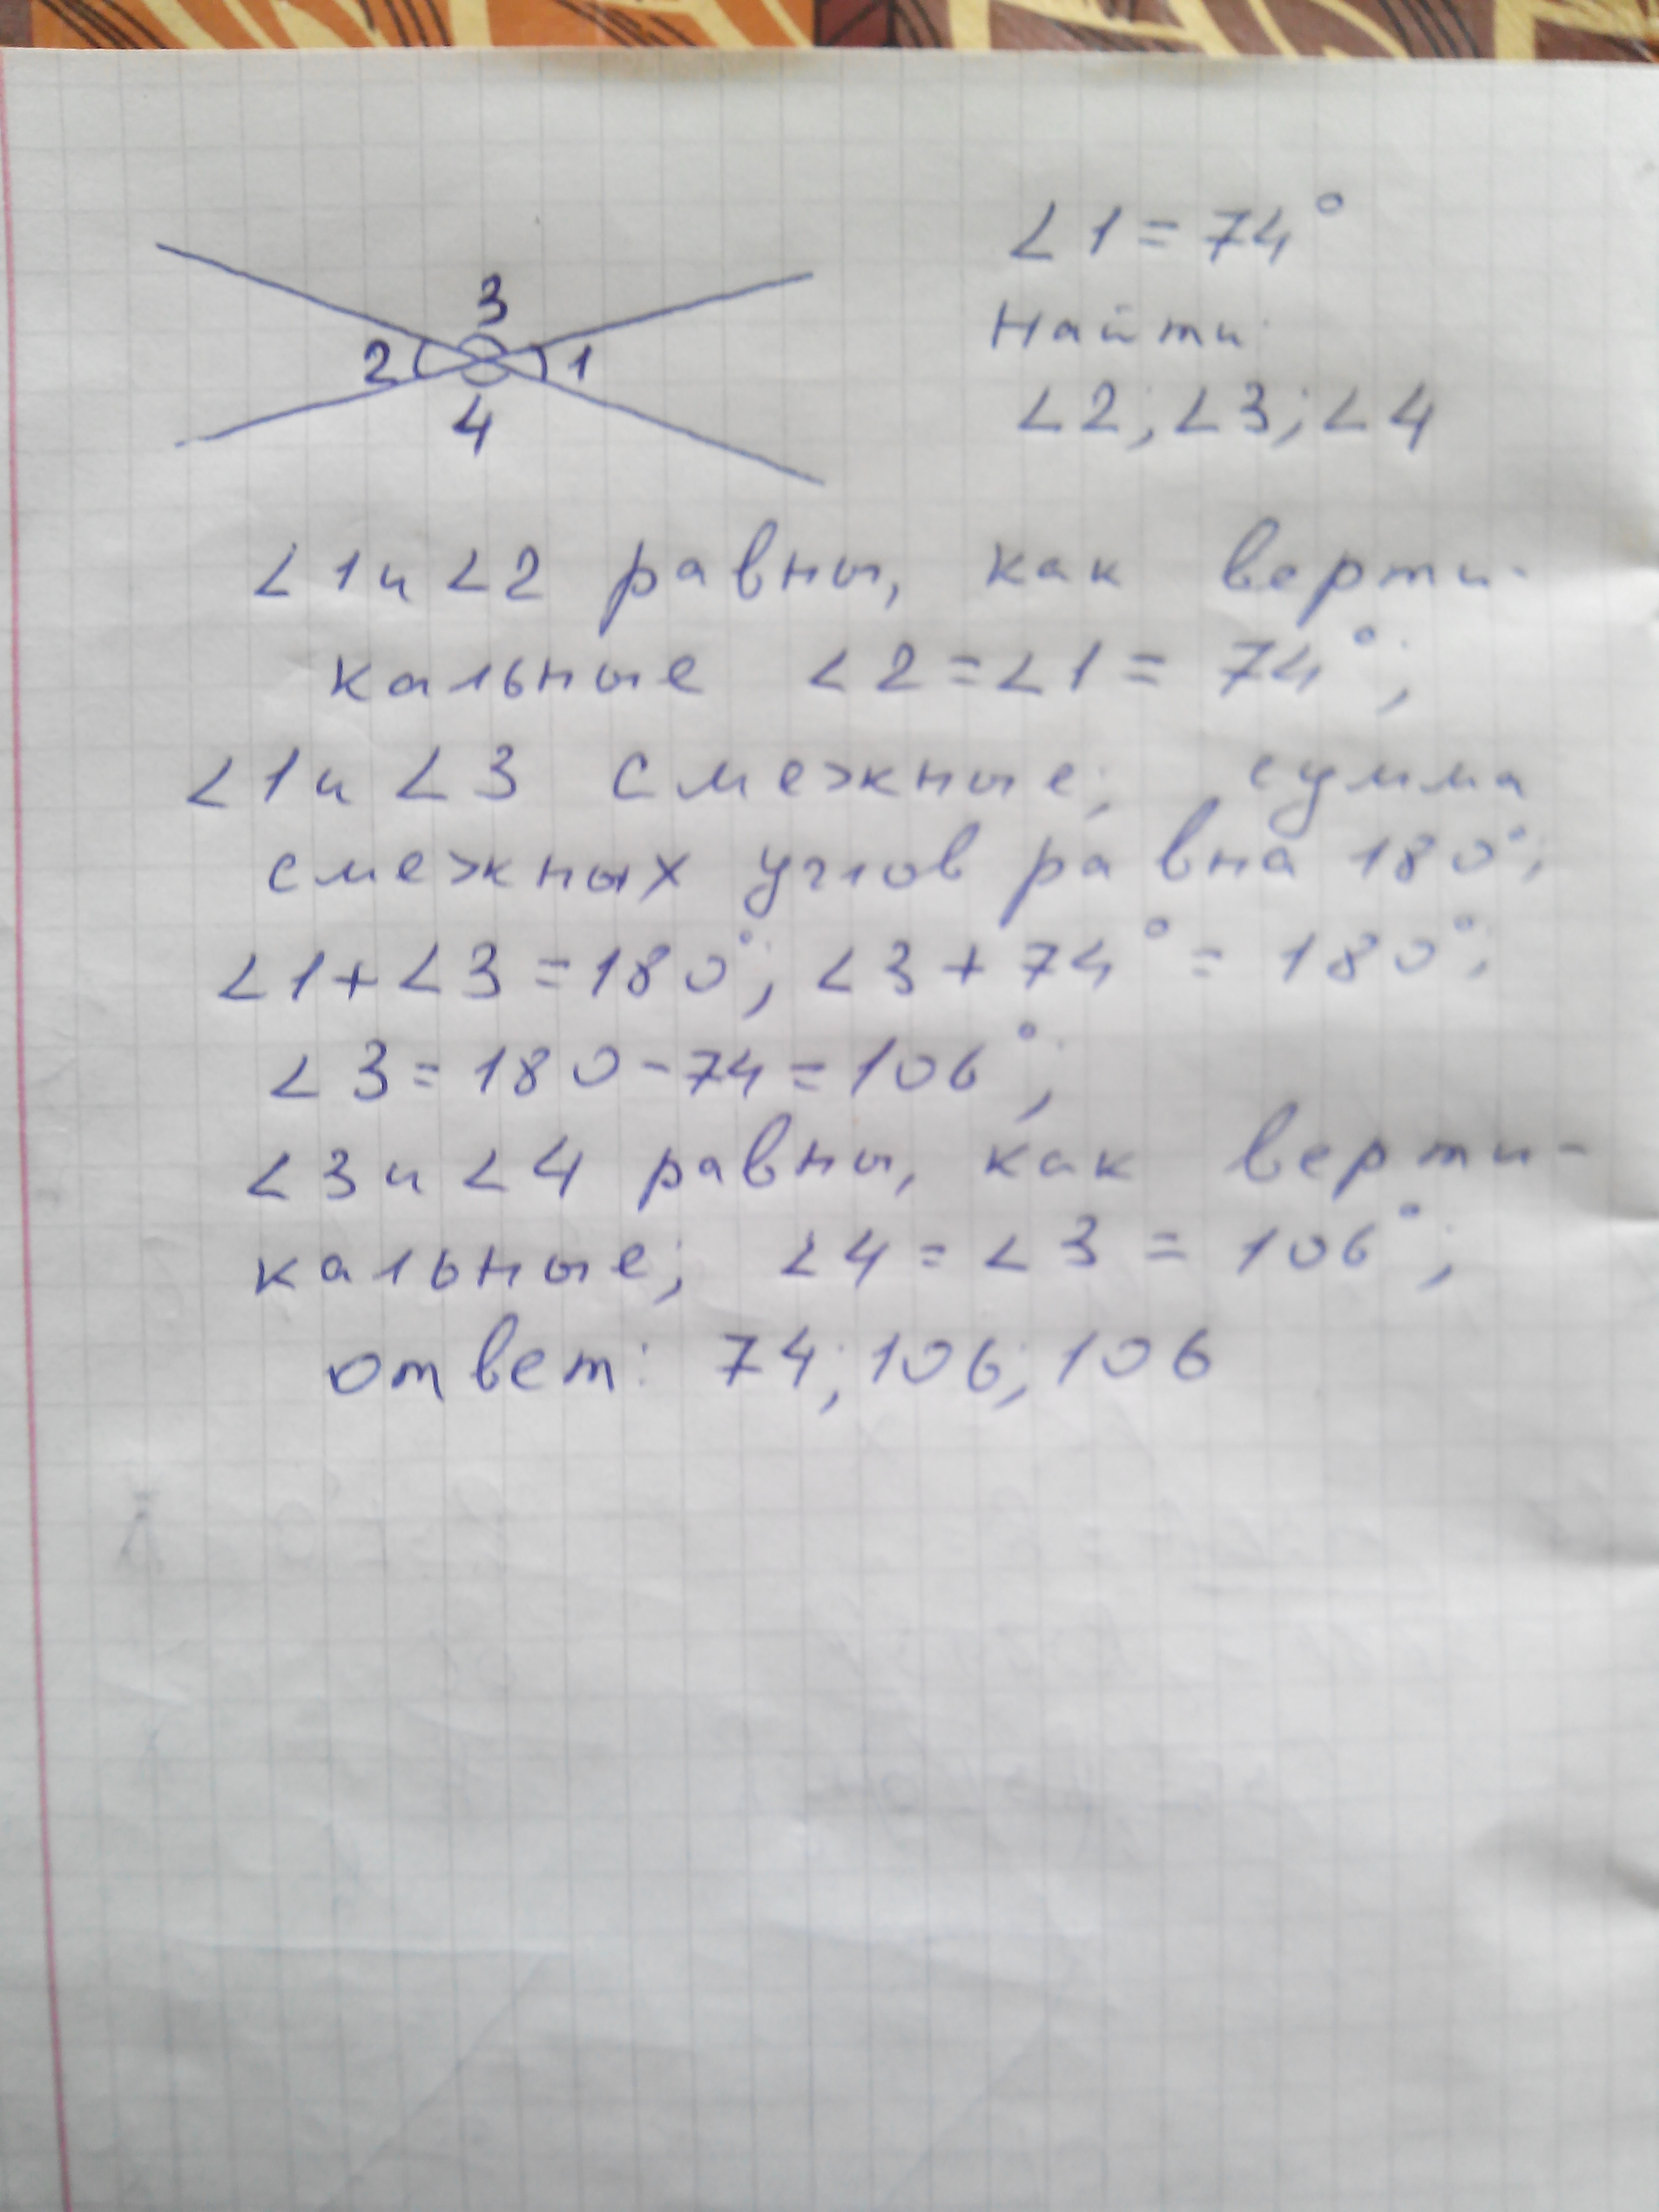 3
2
1
4
∠1=74°
Найти
∠2;∠3;∠4
∠1и∠2 равны, как верти-
кальные ∠2=∠1=74°;
∠1и∠3 смежные; сумма
смежных углов равна 180°;
∠1+∠3=180°; ∠3+74°=180°;
∠3=180-74=106°;
∠3и∠4 равны, как верти-
кальные; ∠4=∠3=106°;
ответ: 74; 106; 106